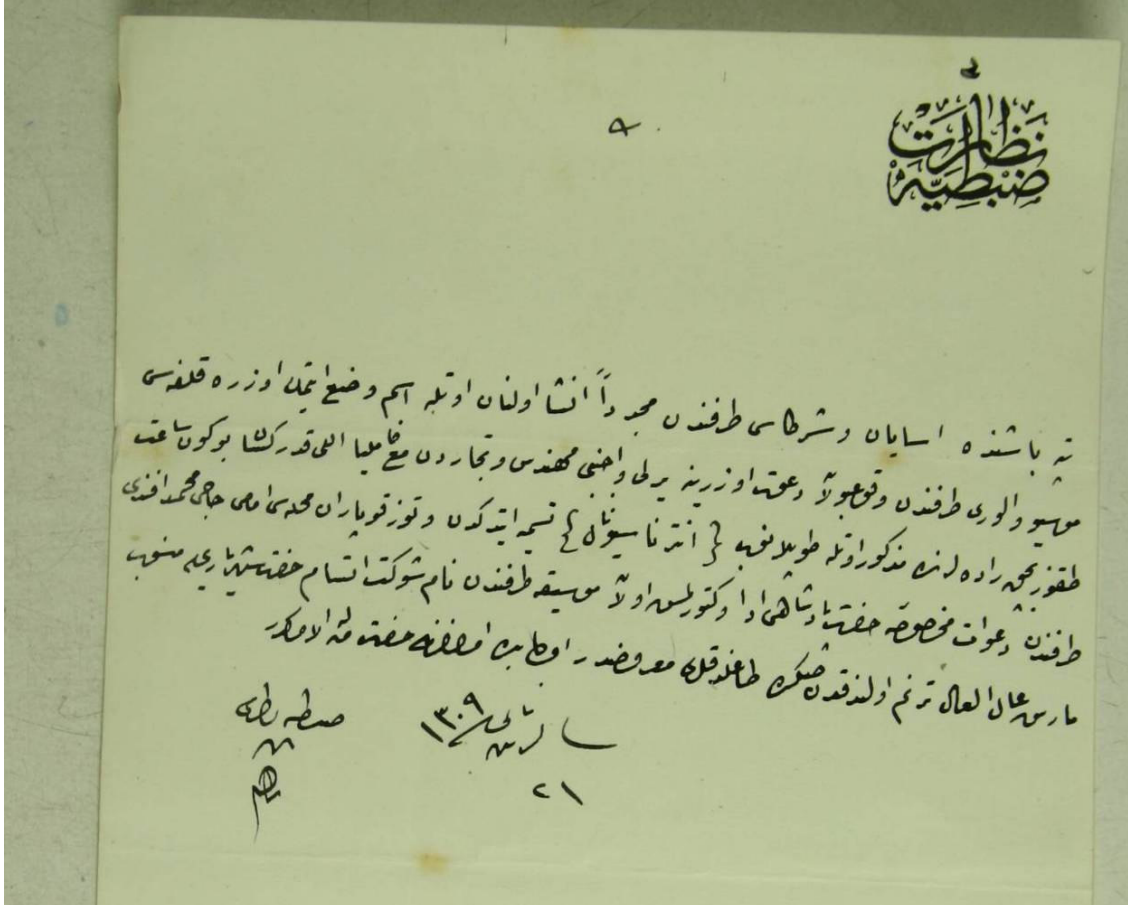 نظارت ضبطیه
٩
تپه باشنده اسایان و شرکاسی طرفندن مجدداً انشا اولنان اوتله اسم وضع ایتمك اوزره قلفه سی
موسیو والوری طرفندن وقوعبولان دعوت اوزرینه یرلی و اجنبی مهندس و تجاردن مع فامیلیا اللی قدر كسان بوكون ساعت
طقوز بچق راده لرنده مذكور اوتله طوپلانه رق { انترناسیونال } تسمیه ایتدكدن و توز قوپاران محله سی امامی حاجی محمد افندی
طرفندن دعوات مخصوصه حضرت پادشاهی ادا و كتوریلمش اولان موسیقه طرفندن نام شوكت اتسام حضرت شهریاری یه منسوب
مارش عال العال ترنم اولندقدن صكره طاغلدقلری معروضدر اولبابده امر و فرمان حضرت من له الامركدر
١٣٠٩
٢١
ضبطیه ناظری
ناظم